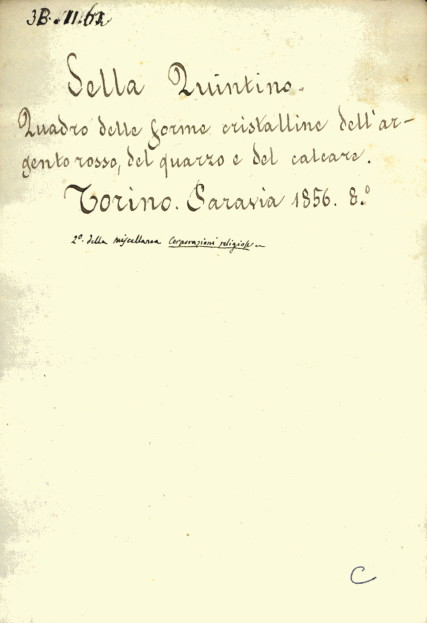 3B. 11. 61
Sella Quintino.
Quadro delle forme cristalline dell'ar-
gento rosso, del quarzo e del calcare.
Torino. Paravia 1856. 8.º
2º. della miscellanea Corporazioni religiose
C